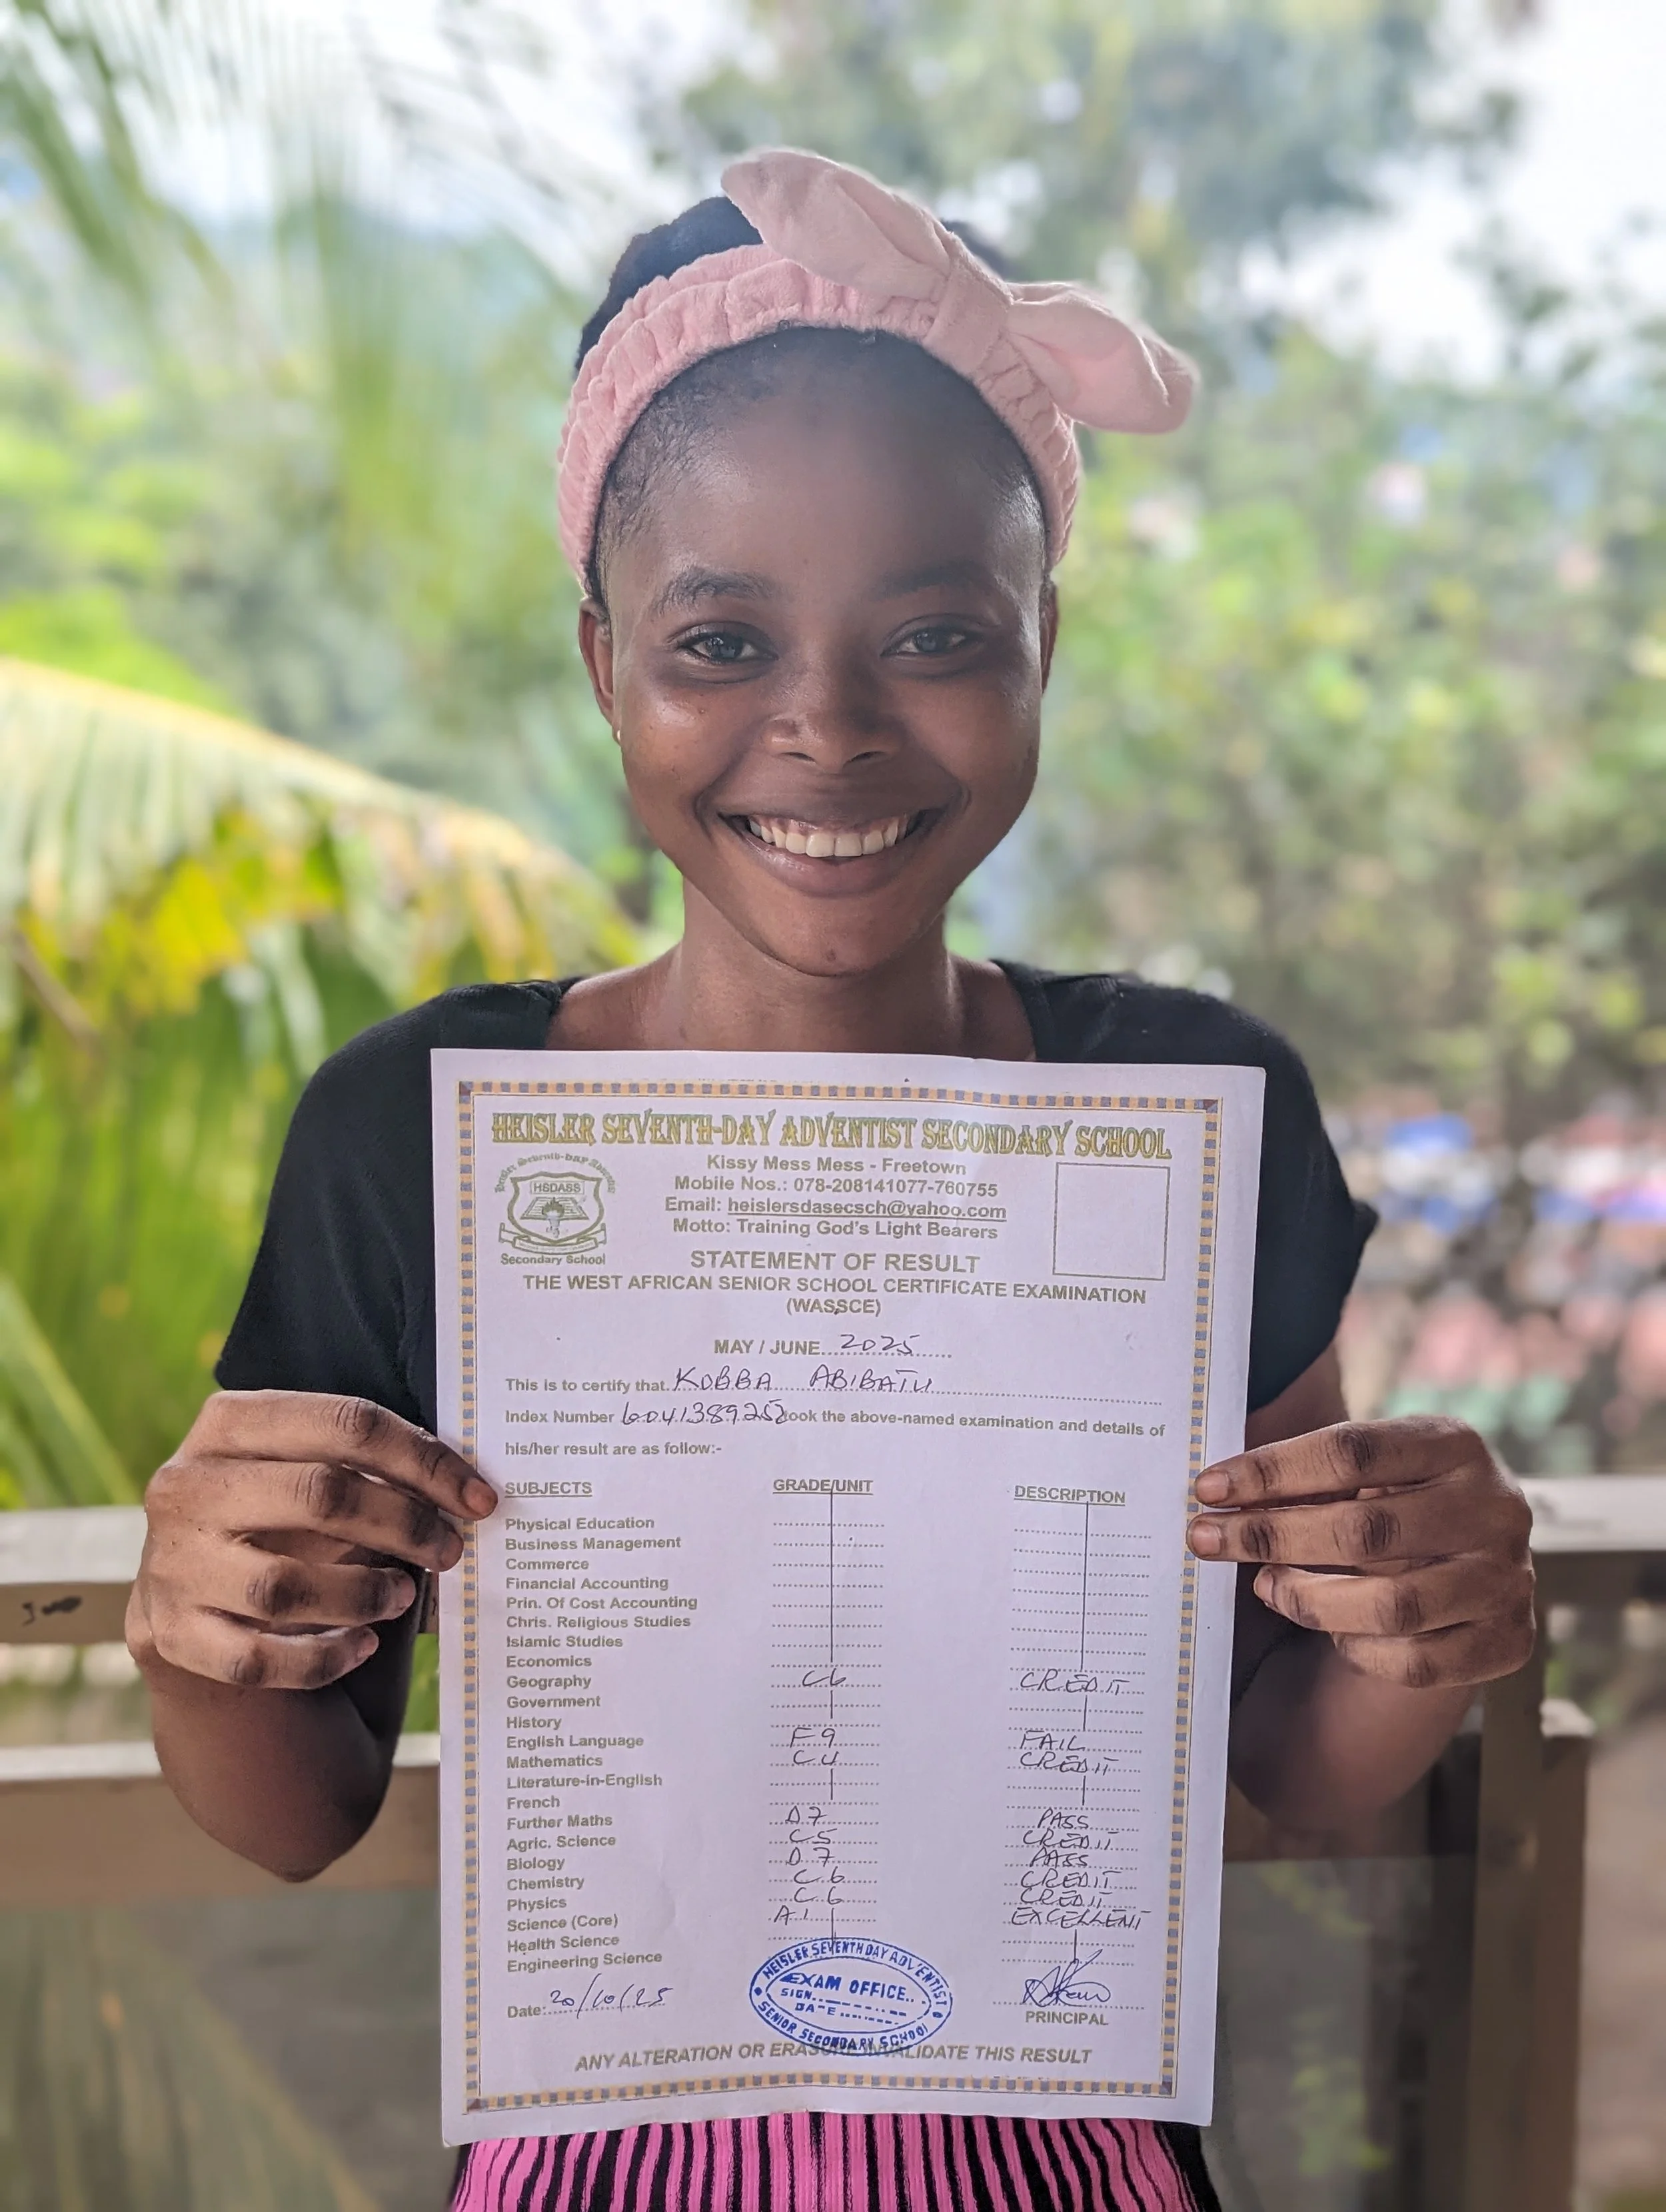 HEISLER SEVENTH-DAY ADVENTIST SECONDARY SCHOOL
Heisler Seventh-Day Adventist
HSDASS
Secondary School
Kissy Mess Mess - Freetown
Mobile Nos.: 078-208141077-760755
Email: heislersdasecsch@yahoo.com
Motto: Training God's Light Bearers
STATEMENT OF RESULT
THE WEST AFRICAN SENIOR SCHOOL CERTIFICATE EXAMINATION
(WASSCE)
MAY / JUNE 2025
This is to certify that KOBBA ABIBATU
Index Number 6041389252 took the above-named examination and details of
his/her result are as follow:-
SUBJECTS GRADE/UNIT DESCRIPTION
Physical Education
Business Management
Commerce
Financial Accounting
Prin. Of Cost Accounting
Chris. Religious Studies
Islamic Studies
Economics
Geography C6 CREDIT
Government
History
English Language F9 FAIL
Mathematics C4 CREDIT
Literature-in-English
French
Further Maths D7 PASS
Agric. Science C5 CREDIT
Biology D7 PASS
Chemistry C6 CREDIT
Physics C6 CREDIT
Science (Core) A1 EXCELLENT
Health Science
Engineering Science
Date: 20/10/25
HEISLER SEVENTH DAY ADVENTIST
EXAM OFFICE
SIGN
DATE
SENIOR SECONDARY SCHOOL
PRINCIPAL
ANY ALTERATION OR ERASURE INVALIDATE THIS RESULT